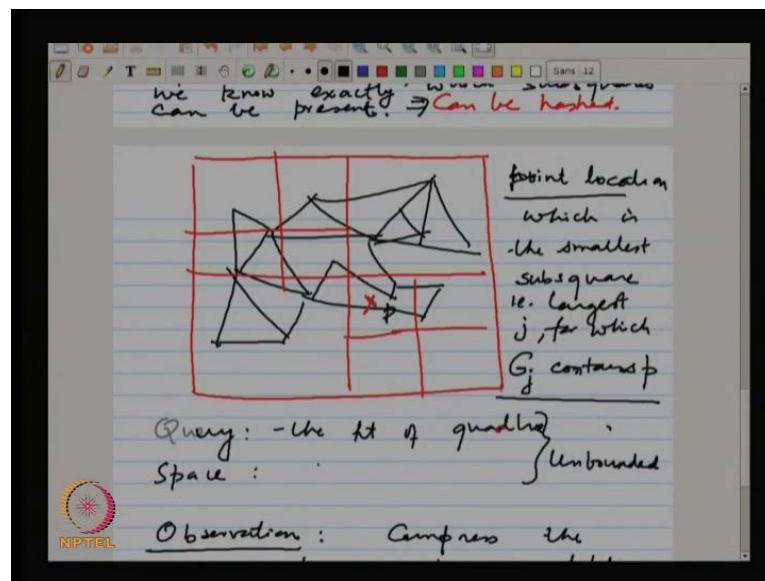 Sans 12
we know exactly which subsquares
can be present. ⇒ Can be hashed.
point location
which is
the smallest
subsquare
ie. largest
j, for which
Gj contains p
p
Query: - the ht of quadtree } Unbounded
Space :
Observation : Compress the
NPTEL